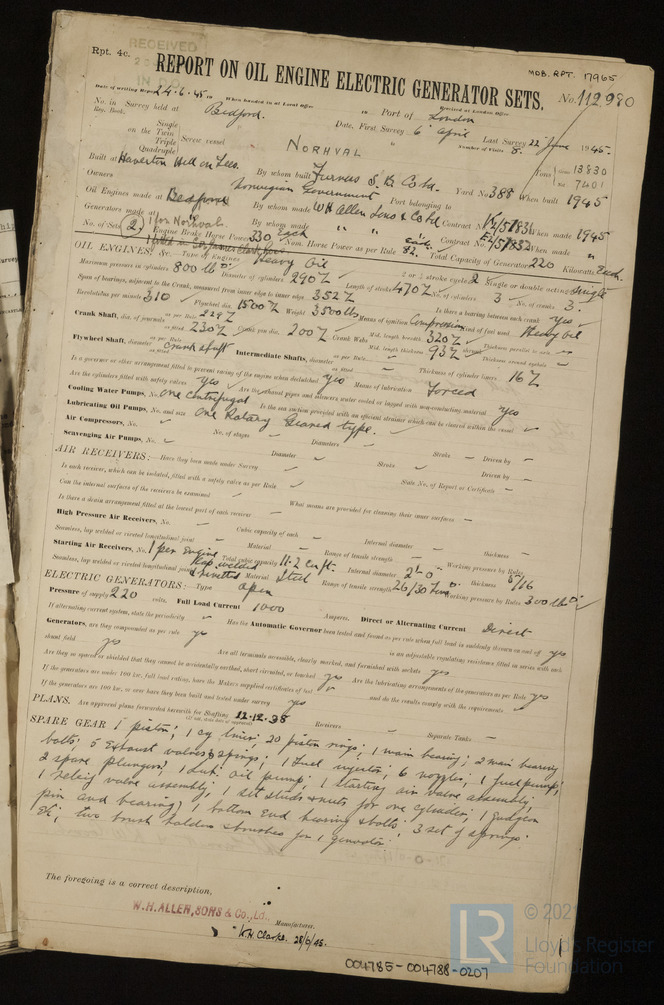 Rpt. 4c.
RECEIVED
MOB. RPT. 17965
REPORT ON OIL ENGINE ELECTRIC GENERATOR SETS.
No. 112980
Date of writing Report 24.6.45 When handed in at Local Office Received at London Office
No. in Reg. Book. Survey held at Bedford. Port of London
Date, First Survey 6 April Last Survey 22 June 1945.
Number of Visits 8.
Single
on the Twin
Triple
Quadruple
Screw vessel NORHVAL
Tons Gross 13830
Net 7401
Built at Haverton Hill on Tees. By whom built Furness S. B. Co Ltd. Yard No. 388 When built 1945
Owners Norwegian Government Port belonging to
Oil Engines made at Bedford By whom made W H Allen Sons & Co Ltd Contract No. When made 1945
Generators made at " By whom made " " Contract No. When made "
No. of Sets 2 Engine Brake Horse Power 330 each Nom. Horse Power as per Rule 82 each Total Capacity of Generators 220 Kilowatts Each.
OIL ENGINES, &c. Type of Engines Heavy Oil 2 or 4 stroke cycle 2 Single or double acting Single
Maximum pressure in cylinders 800 lb Diameter of cylinders 290 Length of stroke 470 No. of cylinders 3 No. of cranks 3.
Span of bearings, adjacent to the Crank, measured from inner edge to inner edge 352 Is there a bearing between each crank yes
Revolutions per minute 310 Flywheel dia. 1500 Weight 3500 lbs Means of ignition Compression Kind of fuel used Heavy Oil
Crank Shaft, dia. of journals as per Rule 229 as fitted 230 Crank pin dia. 200 Crank Webs Mid. length breadth 320 Mid. length thickness 93
Flywheel Shaft, diameter as per Rule crank shaft as fitted Intermediate Shafts, diameter as per Rule as fitted Thickness of cylinder liners 16
Is a governor or other arrangement fitted to prevent racing of the engine when declutched yes Means of lubrication Forced
Are the cylinders fitted with safety valves yes Are the exhaust pipes and silencers water cooled or lagged with non-conducting material yes
Cooling Water Pumps, No. One Centrifugal Is the sea suction provided with an efficient strainer which can be cleared within the vessel
Lubricating Oil Pumps, No. and size One Rotary Geared type.
Air Compressors, No. No. of stages Diameters Stroke Driven by
Scavenging Air Pumps, No. Diameter Stroke Driven by
AIR RECEIVERS:— Have they been made under Survey State No. of Report or Certificate
Is each receiver, which can be isolated, fitted with a safety valve as per Rule
Can the internal surfaces of the receivers be examined What means are provided for cleaning their inner surfaces
Is there a drain arrangement fitted at the lowest part of each receiver
High Pressure Air Receivers, No. Cubic capacity of each Internal diameter thickness
Seamless, lap welded or riveted longitudinal joint Material Range of tensile strength Working pressure by Rules
Starting Air Receivers, No. 1 per Engine Total cubic capacity 11.2 cu ft. Internal diameter 2'-0" thickness 5/16
Seamless, lap welded or riveted longitudinal joint Lap welded & riveted Material Steel Range of tensile strength 26/30 Tons Working pressure by Rules 300 lb
ELECTRIC GENERATORS:— Type Open
Pressure of supply 220 volts. Full Load Current 1000 Amperes. Direct or Alternating Current Direct
If alternating current system, state the periodicity Has the Automatic Governor been tested and found as per rule when full load is suddenly thrown on and off yes
Generators, are they compounded as per rule yes is an adjustable regulating resistance fitted in series with each
shunt field yes Are all terminals accessible, clearly marked, and furnished with sockets yes
Are they so spaced or shielded that they cannot be accidentally earthed, short circuited, or touched yes Are the lubricating arrangements of the generators as per Rule yes
If the generators are under 100 kw. full load rating, have the Makers supplied certificates of test and do the results comply with the requirements
If the generators are 100 kw. or over have they been built and tested under survey yes
PLANS. Are approved plans forwarded herewith for Shafting 12.12.38 Receivers Separate Tanks
SPARE GEAR 1 piston; 1 cy liner; 20 piston rings; 1 main bearing; 2 main bearing
bolts; 5 Exhaust valves & springs; 1 Fuel injector; 6 nozzles; 1 fuel pump;
2 spare plungers; 1 Lub. oil pump; 1 starting air valve assembly;
1 relief valve assembly, 1 set studs & nuts for one cylinder; 1 gudgeon
pin and bearing; 1 bottom end bearing & bolts; 3 set of springs.
Etc; two brush holders & brushes for 1 generator.
The foregoing is a correct description,
W.H. ALLEN, SONS & Co., Ld.,
Manufacturer.
W.H. Clarke. 28/6/45.
004785-004788-0207
LR
Lloyd's Register
Foundation